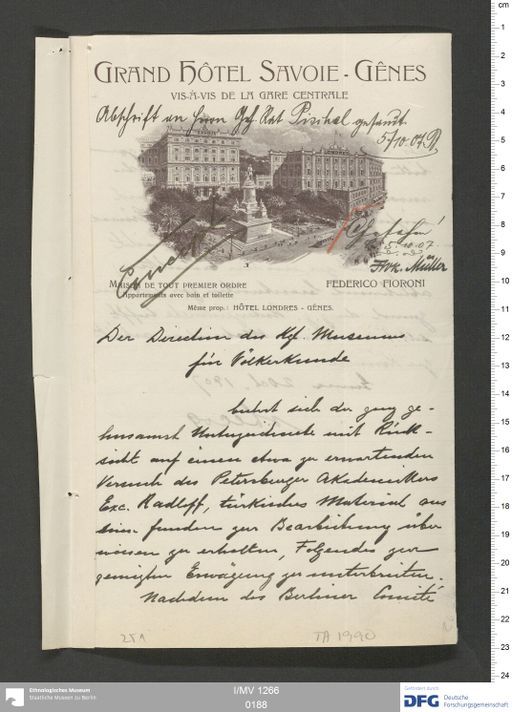 GRAND HÔTEL SAVOIE - GÊNES
VIS-À-VIS DE LA GARE CENTRALE
Abschrift an Herrn Geh. Rat gesandt.
5/10.07
5.10.07.
Müller
MAISON DE TOUT PREMIER ORDRE
Appartements avec bain et toilette
FEDERICO FIORONI
Même prop.: HÔTEL LONDRES - GÊNES.
Der Direction des Kgl. Museums
für Völkerkunde
beehrt sich der ganz ge-
horsamst Unterzeichnete mit Rück-
sicht auf einen etwa zu erwartenden
Versuch des Petersburger Akademikers
Exc. Radloff, türkisches Material aus
funden zur Bearbeitung über
wiesen zu erhalten, Folgendes zur
geneigten Erwägung zu unterbreiten.
Nachdem das Berliner Comité
TA 1990
Ethnologisches Museum
Staatliche Museen zu Berlin
I/MV 1266
0188
Gefördert durch
DFG
Deutsche
Forschungsgemeinschaft
cm
1
2
3
4
5
6
7
8
9
10
11
12
13
14
15
16
17
18
19
20
21
22
23
24